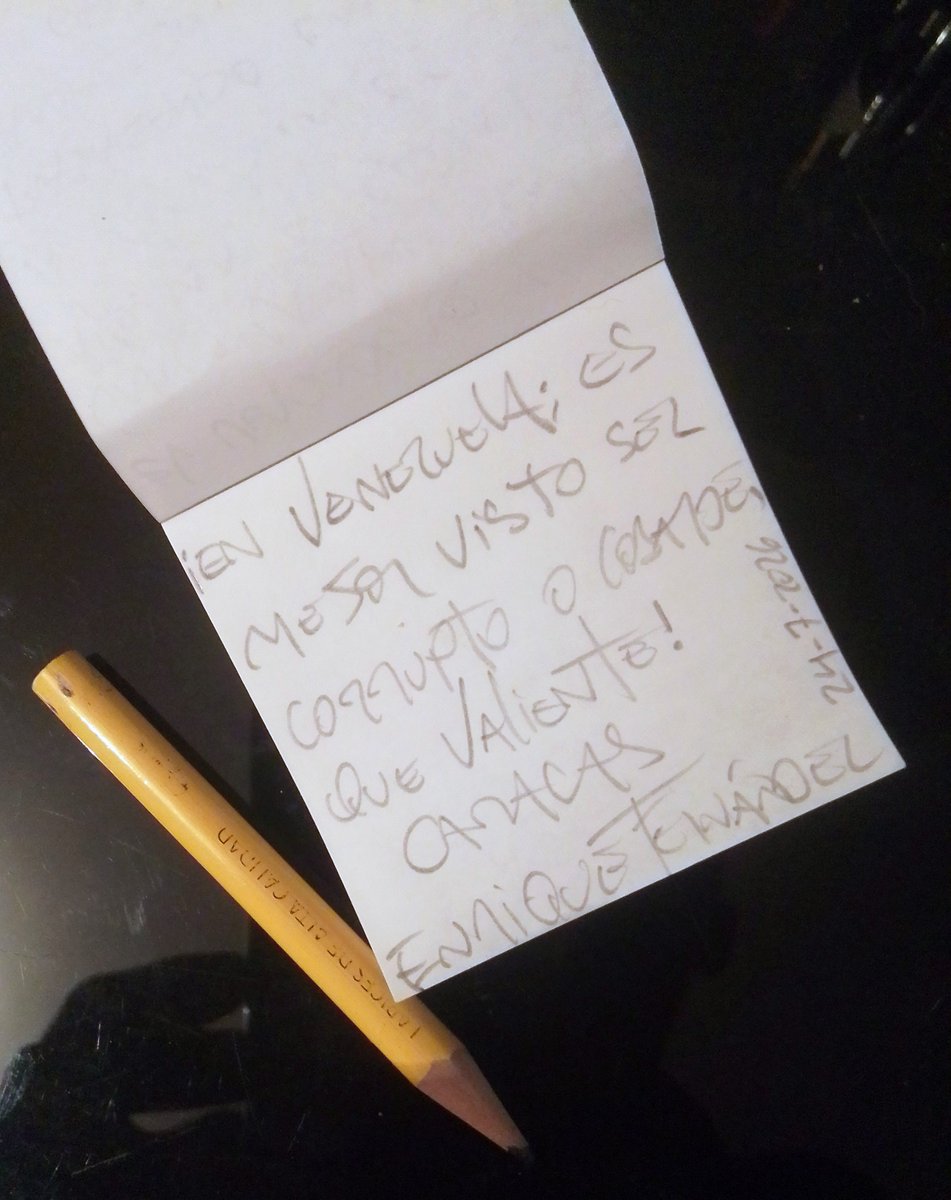 ¡EN VENEZUELA; ES
MEJOR VISTO SER
CORRUPTO O COBARDE,
QUE VALIENTE!
CARACAS
ENRIQUE FERNÁNDEZ
24-7-2026
LAPICES DE ALTA CALIDAD